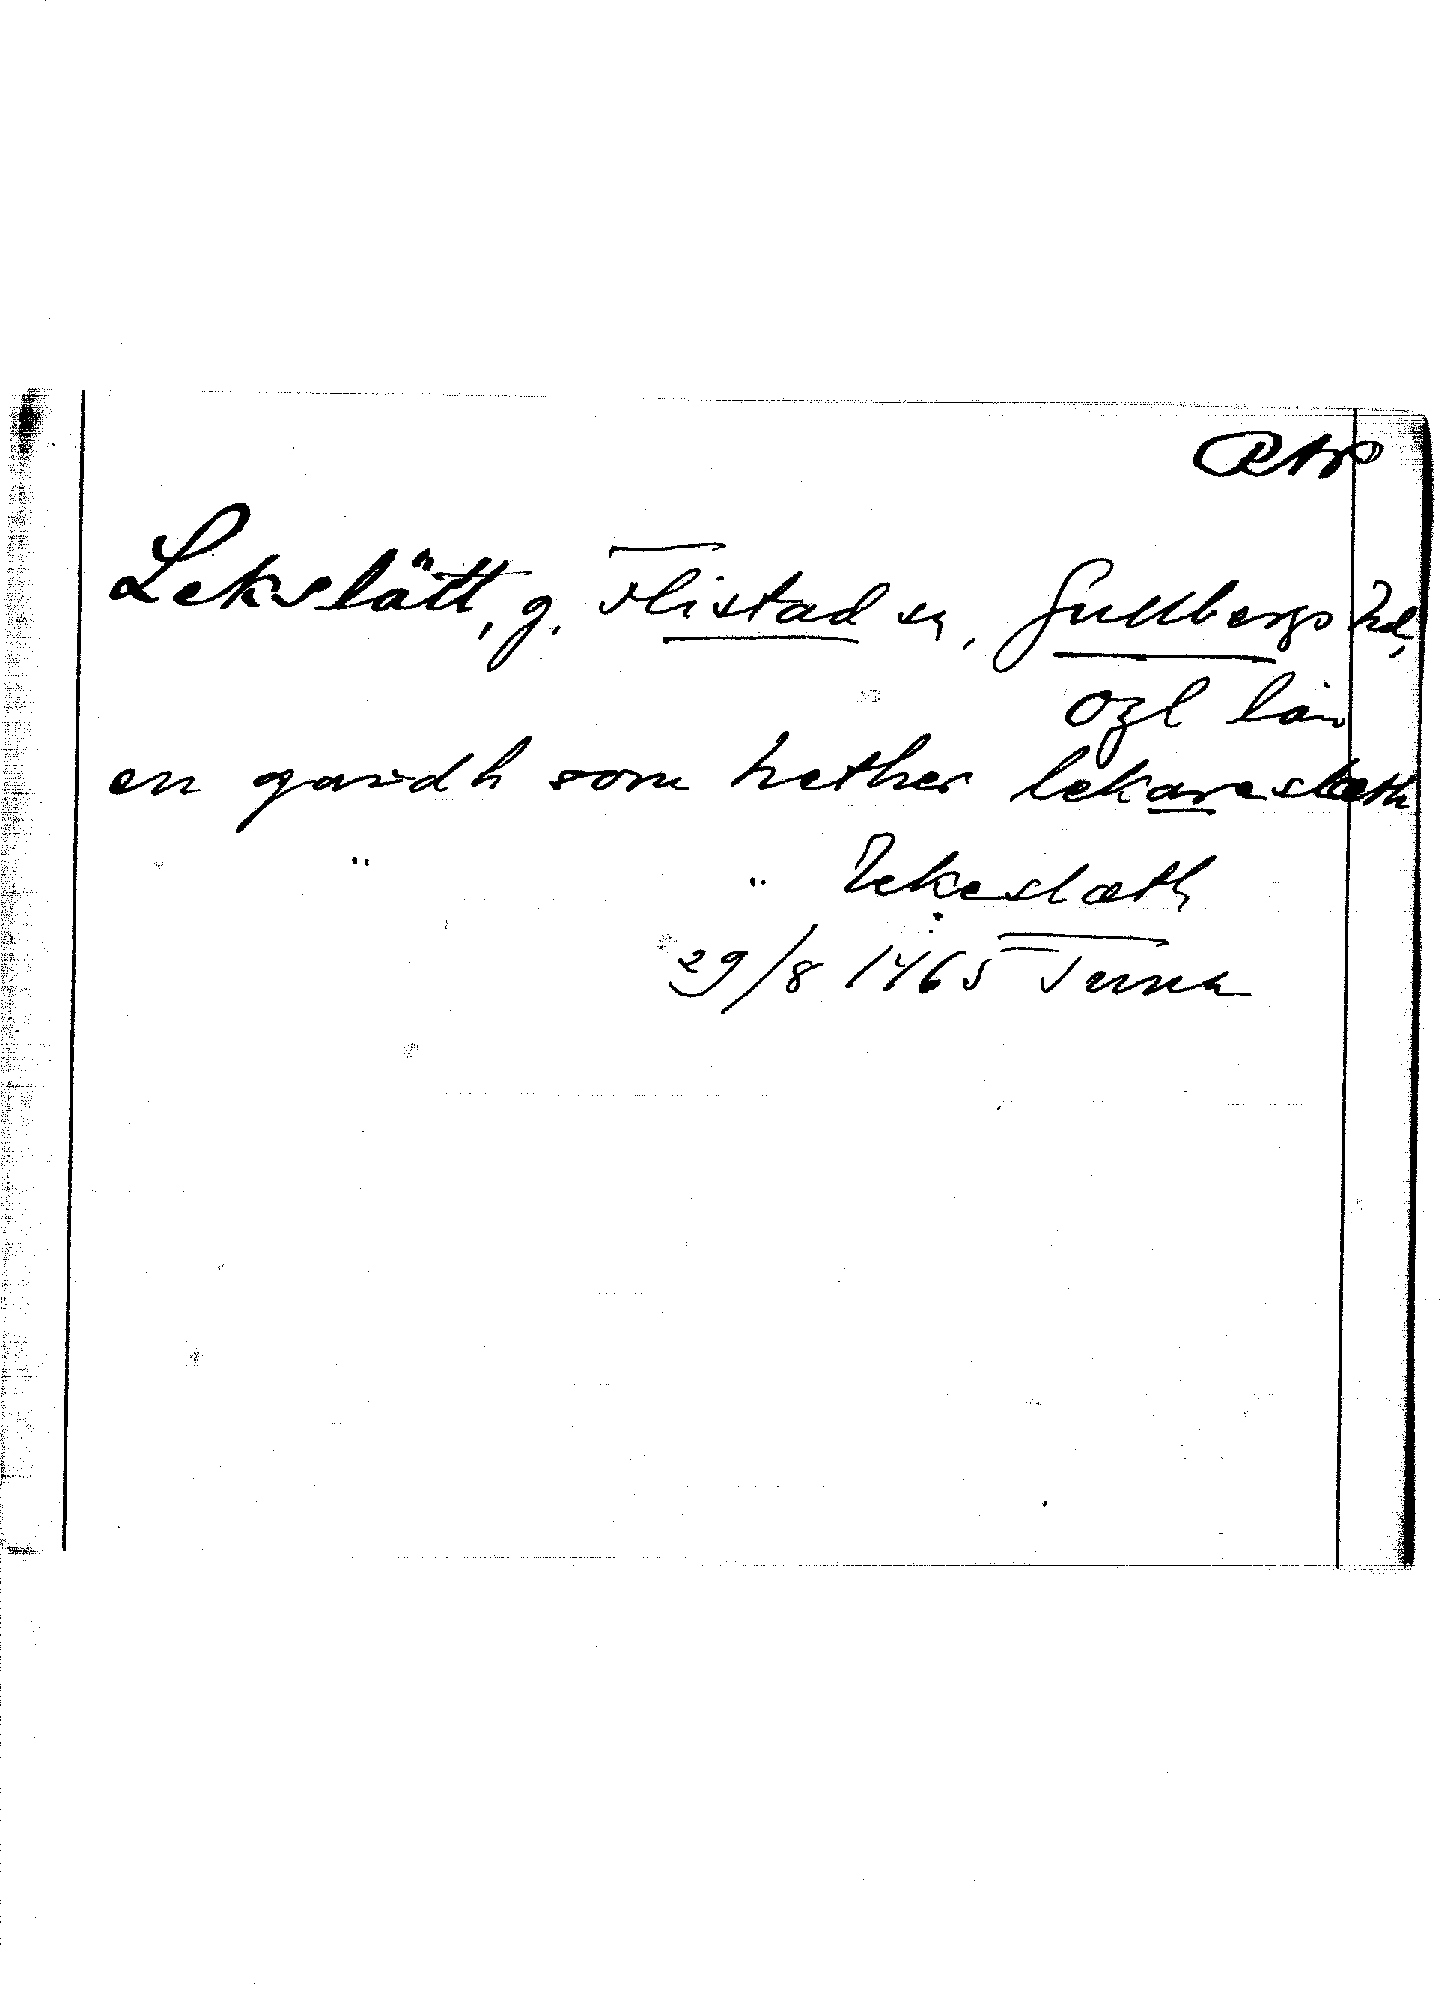 RAP
Lekslätt, g. Flistad sn, Gullbergs hd,
Ögl län
en gardh som hether lekareslæth
" " Lekeslæth
29/8 1465